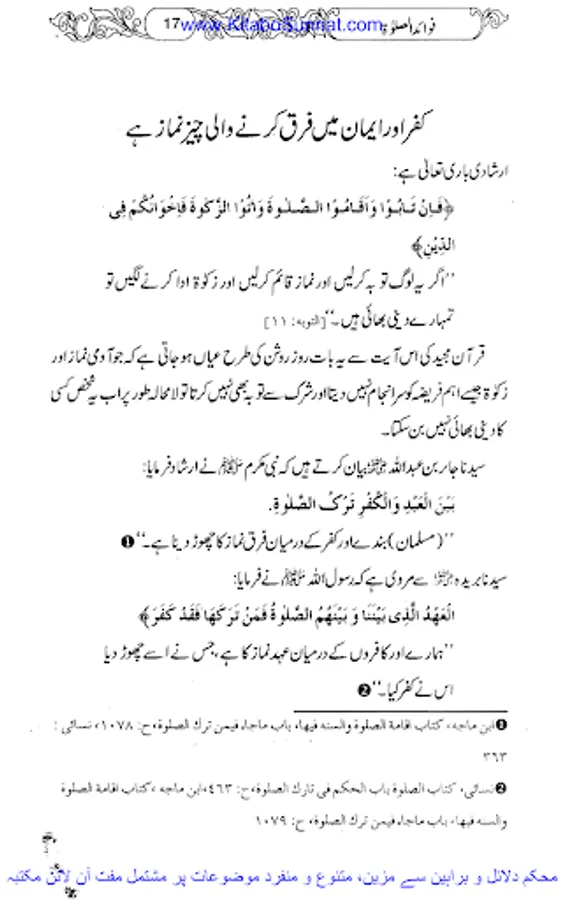 فوائد الصلوٰۃ www.KitaboSunnat.com 17
کفر اور ایمان میں فرق کرنے والی چیز نماز ہے
ارشادی باری تعالیٰ ہے:
﴿فَاِنْ تَابُوْا وَاَقَامُوا الصَّلٰوةَ وَاٰتُوا الزَّكٰوةَ فَاِخْوَانُكُمْ فِی
الدِّیْنِ﴾
’’اگر یہ لوگ توبہ کرلیں اور نماز قائم کرلیں اور زکوٰۃ ادا کرنے لگیں تو
تمہارے دینی بھائی ہیں۔‘‘ [التوبہ: ١١]
قرآن مجید کی اس آیت سے یہ بات روز روشن کی طرح عیاں ہوجاتی ہے کہ جو آدمی نماز اور
زکوٰۃ جیسے اہم فریضہ کو سرانجام نہیں دیتا اور شرک سے توبہ بھی نہیں کرتا تو لامحالہ طور پر اب یہ شخص کسی
کا دینی بھائی نہیں بن سکتا۔
سیدنا جابر بن عبداللہ رضی اللہ عنہ بیان کرتے ہیں کہ نبی مکرم ﷺ نے ارشاد فرمایا:
بَیْنَ الْعَبْدِ وَالْكُفْرِ تَرْكُ الصَّلٰوةِ.
’’(مسلمان) بندے اور کفر کے درمیان فرق نماز کا چھوڑ دینا ہے۔‘‘ ❶
سیدنا بریدہ رضی اللہ عنہ سے مروی ہے کہ رسول اللہ ﷺ نے فرمایا:
الْعَهْدُ الَّذِی بَیْنَنَا وَ بَیْنَهُمُ الصَّلٰوةُ فَمَنْ تَرَكَهَا فَقَدْ كَفَرَ﴾
’’ہمارے اور کافروں کے درمیان عہد نماز کا ہے، جس نے اسے چھوڑ دیا
اس نے کفر کیا۔‘‘ ❷
❶ ابن ماجه، كتاب اقامة الصلوة والسنه فيها، باب ماجاء فيمن ترك الصلوة، ح: ١٠٧٨، نسائی:
٣٦٣
❷ نسائی، كتاب الصلوة باب الحكم فی تارك الصلوة، ح: ٤٦٣، ابن ماجه، كتاب اقامة الصلوة
والسنه فيها، باب ماجاء فيمن ترك الصلوة، ح: ١٠٧٩
محکم دلائل و براہین سے مزین، متنوع و منفرد موضوعات پر مشتمل مفت آن لائن مکتبہ